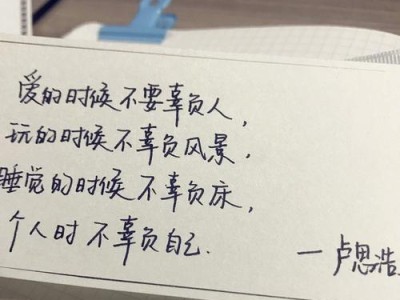 爱的时候不要辜负人，
玩的时候不辜负风景．
睡觉的时候不辜负床，
个人时不辜负自己．
—卢思浩